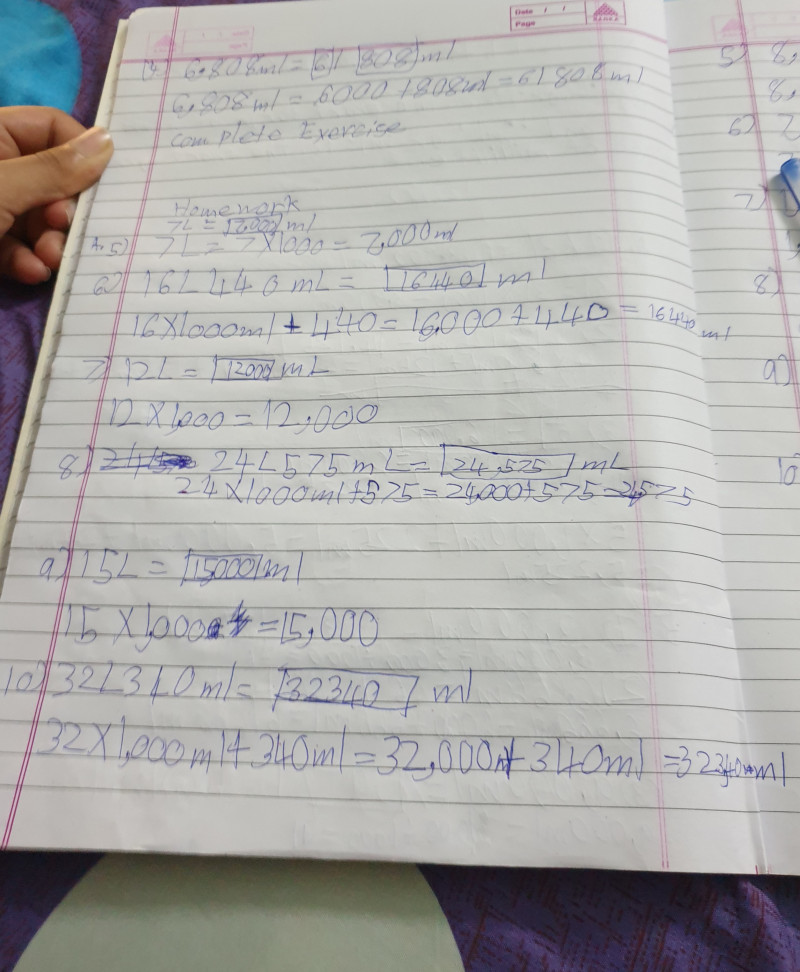 Date / /
Page
4. 6,808ml = [6]l [808]ml
6,808ml = 6000 + 808ml = 6l 808ml
Complete Exercise
Homework
7L = [7,000]ml
5) 7L = 7X1000 = 7,000ml
6) 16L 440mL = [16440] ml
16X1000ml + 440 = 16,000 + 440 = 16440 ml
7) 12L = [12000] mL
12 X 1,000 = 12,000
8) 24L 575mL = [24,575] mL
24X1000ml+575 = 24,000+575 = 24575
9) 15L = [15000]ml
15 X 1,000 = 15,000
10) 32L340ml = [32340] ml
32X1,000ml+340ml = 32,000ml+340ml = 32340ml
5) 8,
8,
6)
7)
8)
9)
10